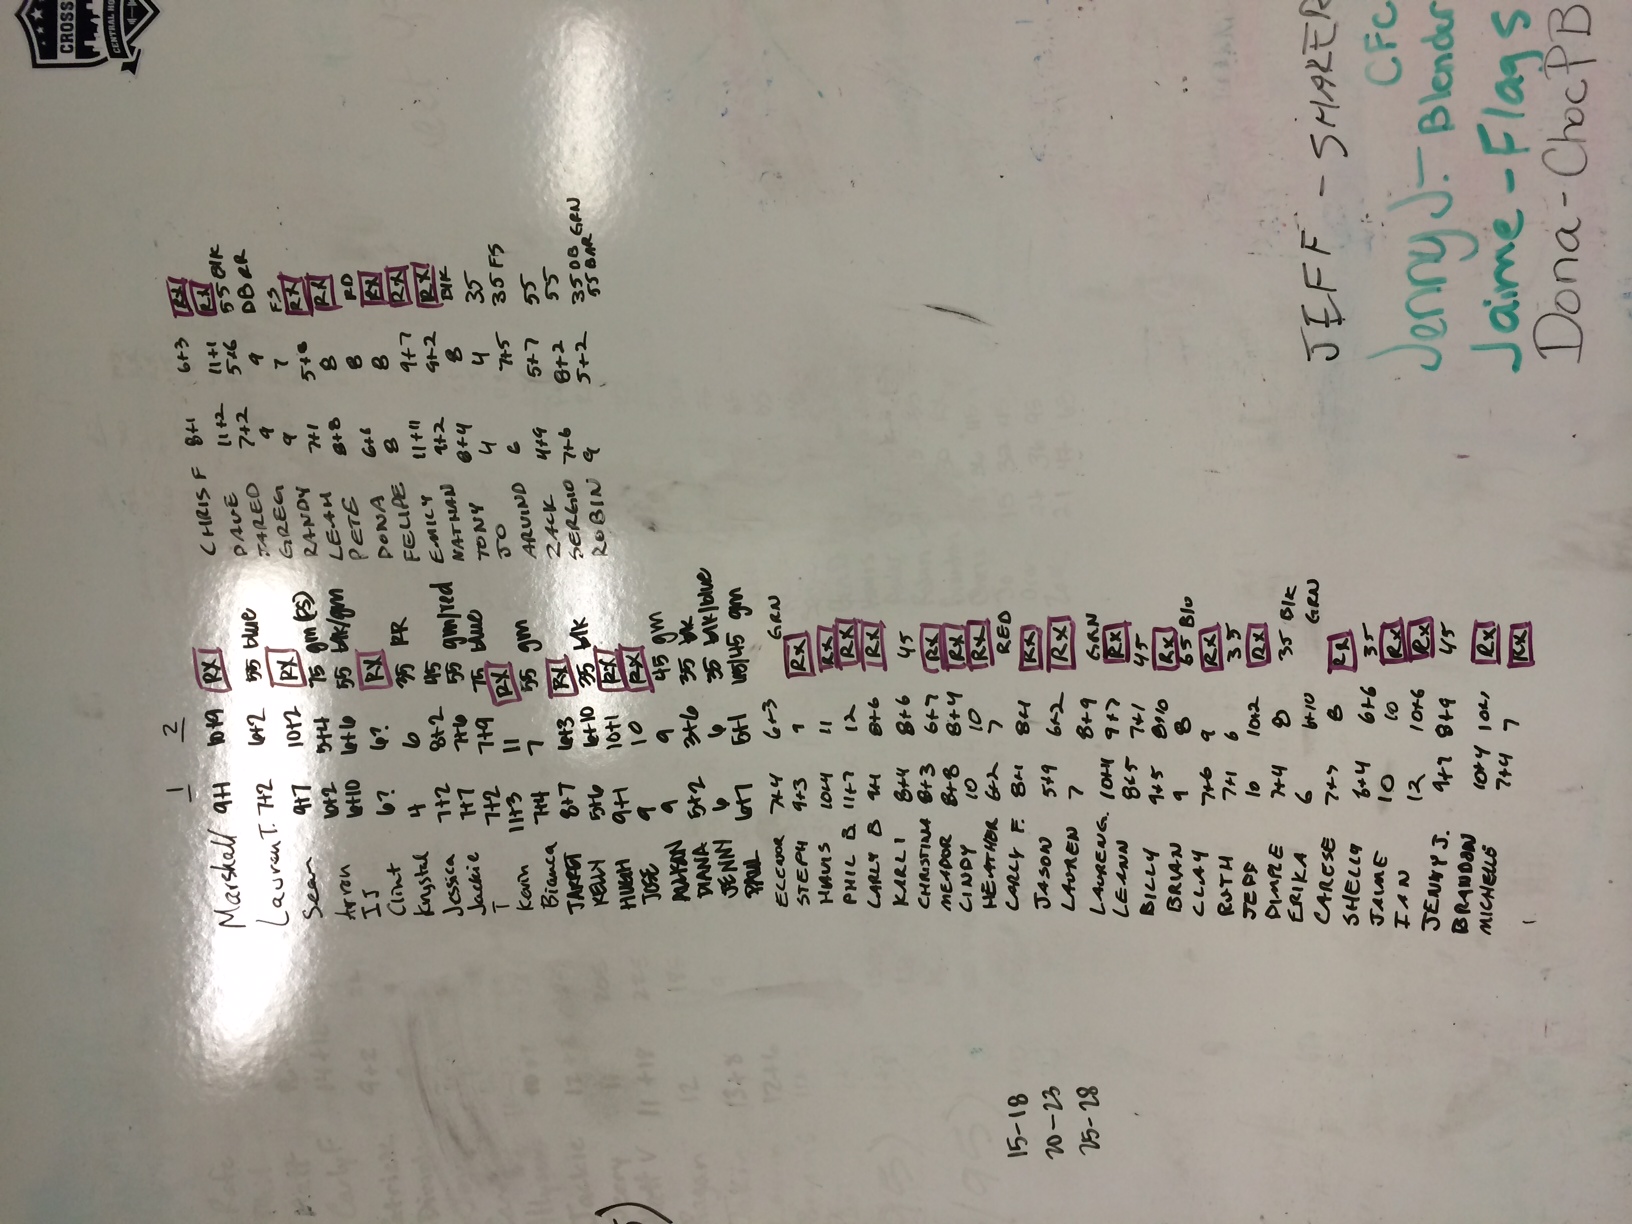 CROSS
CENTRAL HO
1 2
Marshall 9+1 10+9 RX
Lauren T. 7+2 6+2 55 blue
Sean 9+7 10+2 RX
Aron 6+2 5+4 75 grn (FS)
IJ 6+10 6+6 55 blk/grn
Clint 6? 6? RX
Krystal 4 6 35 RR
Jessica 7+2 8+2 45 grn/red
Jackie 7+7 7+6 55 blue
T 7+2 7+9 75
Karin 11+3 11 RX
Bianca 7+4 7 55 grn
JANET 8+7 6+3 RX
KELLY 5+6 6+10 35 blk
HUGH 9+1 10+1 RX
JOSE 9 10 RX
ALISON 9 9 45 grn
DIANA 5+2 3+6 35 blk
JENNY 6 6 35 blk/blue
PAUL 6+7 5+1 45 grn
ELEANOR 7+4 6+3 GRN
STEPH 9+3 9 Rx
HAVIS 10+4 11 Rx
PHIL B 11+7 12 Rx
CARLY B 9+1 8+6 Rx
KARLI 8+4 8+6 45
CHRISTINA 8+3 6+7 Rx
MEADOR 8+8 8+4 Rx
CINDY 10 10 Rx
HEATHER 6+2 7 RED
CARLY F. 8+1 8+1 Rx
JASON 5+9 6+2 Rx
LAUREN 7 8+9 GRN
LAUREN G. 10+4 9+7 Rx
LEANN 8+5 7+1 45
BILLY 9+5 8+10 Rx
BRIAN 9 8 65 Blu
CLAY 7+6 9 Rx
RUTH 7+1 6 35
JEFF 10 10+2 Rx
DIMPLE 7+4 8 35 Blk
ERIKA 6 6+10 GRN
CARESE 7+7 8 Rx
SHELLY 6+4 6+6 35
JAIME 10 10 Rx
IAN 12 10+6 Rx
JENNY J. 9+7 8+9 45
BRANDON 10+4 10+1 Rx
MICHELLE 7+4 7 Rx
CHRIS F 8+1 6+3 RX
DAVE 11+2 11+1 RX
JARED 7+2 5+6 55 Blk
GREG 9 9 DB RR
RANDY 9 7 FS
LEAH 7+1 5+8 RX
PETE 8+8 8 RX
DONA 6+6 8 RD
FELIPE 8 8 RX
EMILY 11+11 9+7 RX
NATHAN 9+2 9+2 RX
TONY 8+4 8 BLK
JO 4 4 35
ARVIND 6 7+5 35 FS
ZACK 4+9 5+7 55
SERGIO 7+6 8+2 55
ROBIN 9 5+2 35 DB GRN
55 BAR
15-18
20-23
25-28
JEFF - SHAKER
CFC
Jenny J. - Blender
Jaime - Flags
Dona - Choc PB